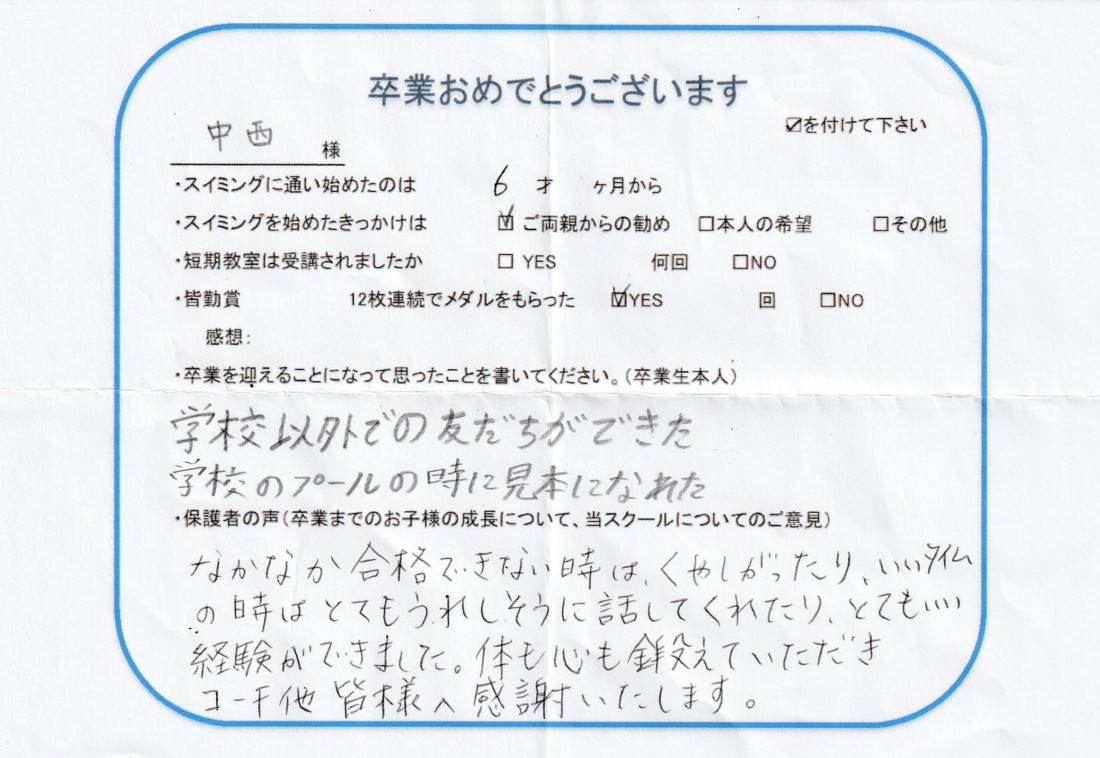 卒業おめでとうございます
☑を付けて下さい
中西 様
・スイミングに通い始めたのは 6 才 ヶ月から
・スイミングを始めたきっかけは ☑ ご両親からの勧め □本人の希望 □その他
・短期教室は受講されましたか □ YES 何回 □NO
・皆勤賞 12枚連続でメダルをもらった ☑YES 回 □NO
感想:
・卒業を迎えることになって思ったことを書いてください。(卒業生本人)
学校以外での友だちができた
学校のプールの時に見本になれた
・保護者の声(卒業までのお子様の成長について、当スクールについてのご意見)
なかなか合格できない時は、くやしがったり、いいタイム
の時はとてもうれしそうに話してくれたり、とてもいい
経験ができました。体も心も鍛えていただき
コーチ他 皆様へ感謝いたします。